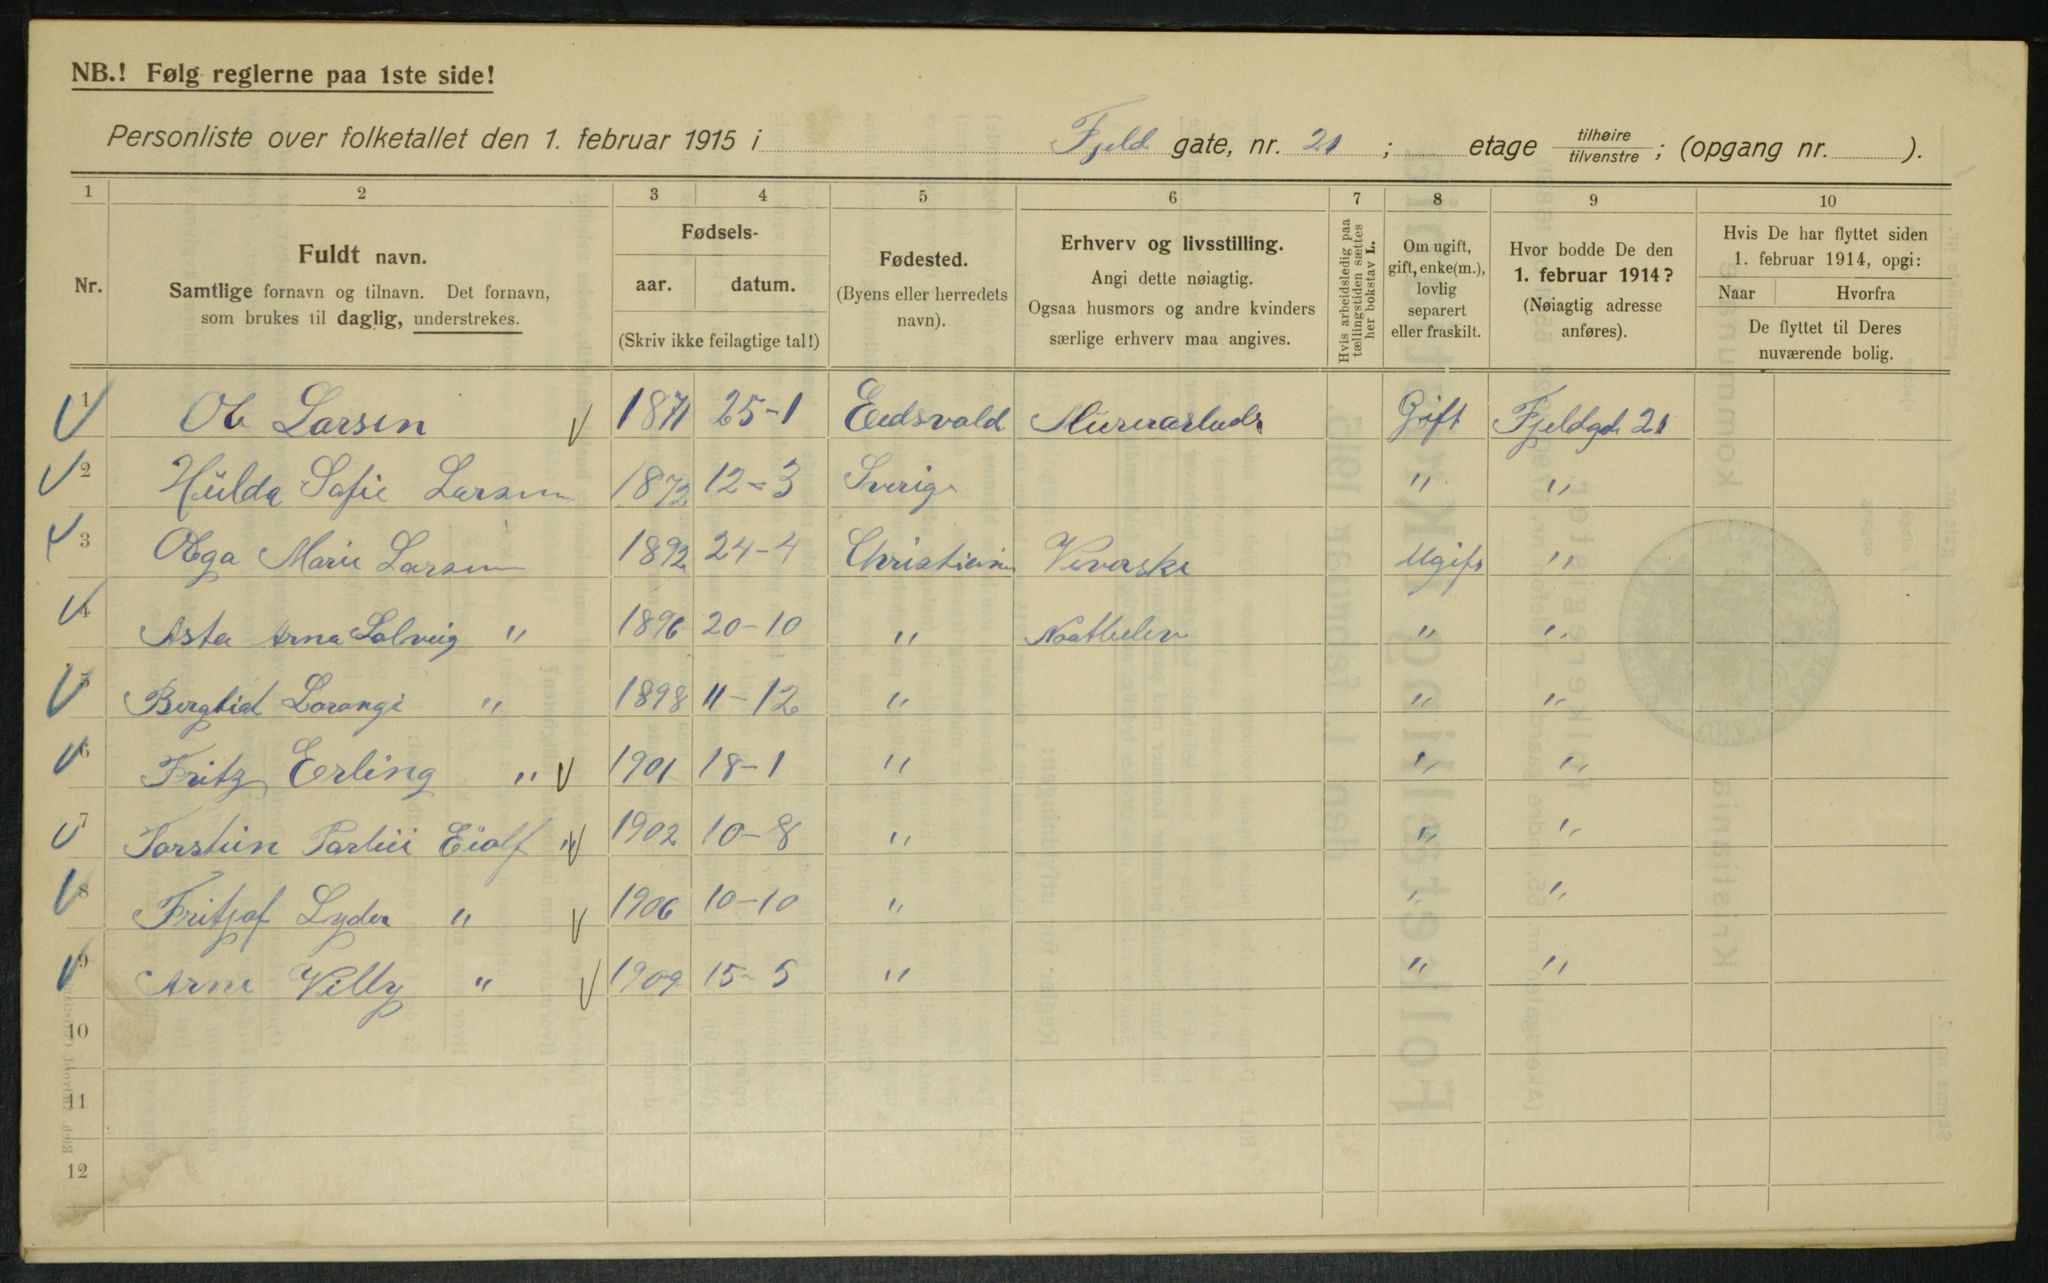 NB.! Følg reglerne paa 1ste side!
Personliste over folketallet den 1. februar 1915 i Fjeld gate, nr. 21 ; etage tilhøire / tilvenstre ; (opgang nr. ).
1 2 3 4 5 6 7 8 9 10
Nr.
Fuldt navn.
Samtlige fornavn og tilnavn. Det fornavn,
som brukes til daglig, understrekes.
Fødsels-
aar. datum.
(Skriv ikke feilagtige tal!)
Fødested.
(Byens eller herredets
navn).
Erhverv og livsstilling.
Angi dette nøiagtig.
Ogsaa husmors og andre kvinders
særlige erhverv maa angives.
Hvis arbeidsledig paa
tællingstiden sættes
her bokstav L.
Om ugift,
gift, enke(m.),
lovlig
separert
eller fraskilt.
Hvor bodde De den
1. februar 1914?
(Nøiagtig adresse
anføres).
Hvis De har flyttet siden
1. februar 1914, opgi:
Naar Hvorfra
De flyttet til Deres
nuværende bolig.
1 Larsen 1871 25-1 Eidsvold Gift Fjeldgd. 21
2 Hulda Sofie Larsen 1872 12-3 Sverig " "
3 Olga Marie Larsen 1892 24-4 Christiania Veverske Ugift "
4 Asta Arna Solveig " 1896 20-10 " " "
5 " 1898 11-12 " " "
6 Fritz Erling " 1901 18-1 " " "
7 Eiolf " 1902 10-8 " " "
8 Fritjof Lyder " 1906 10-10 " " "
9 Arne Villy " 1909 15-5 " " "
10
11
12